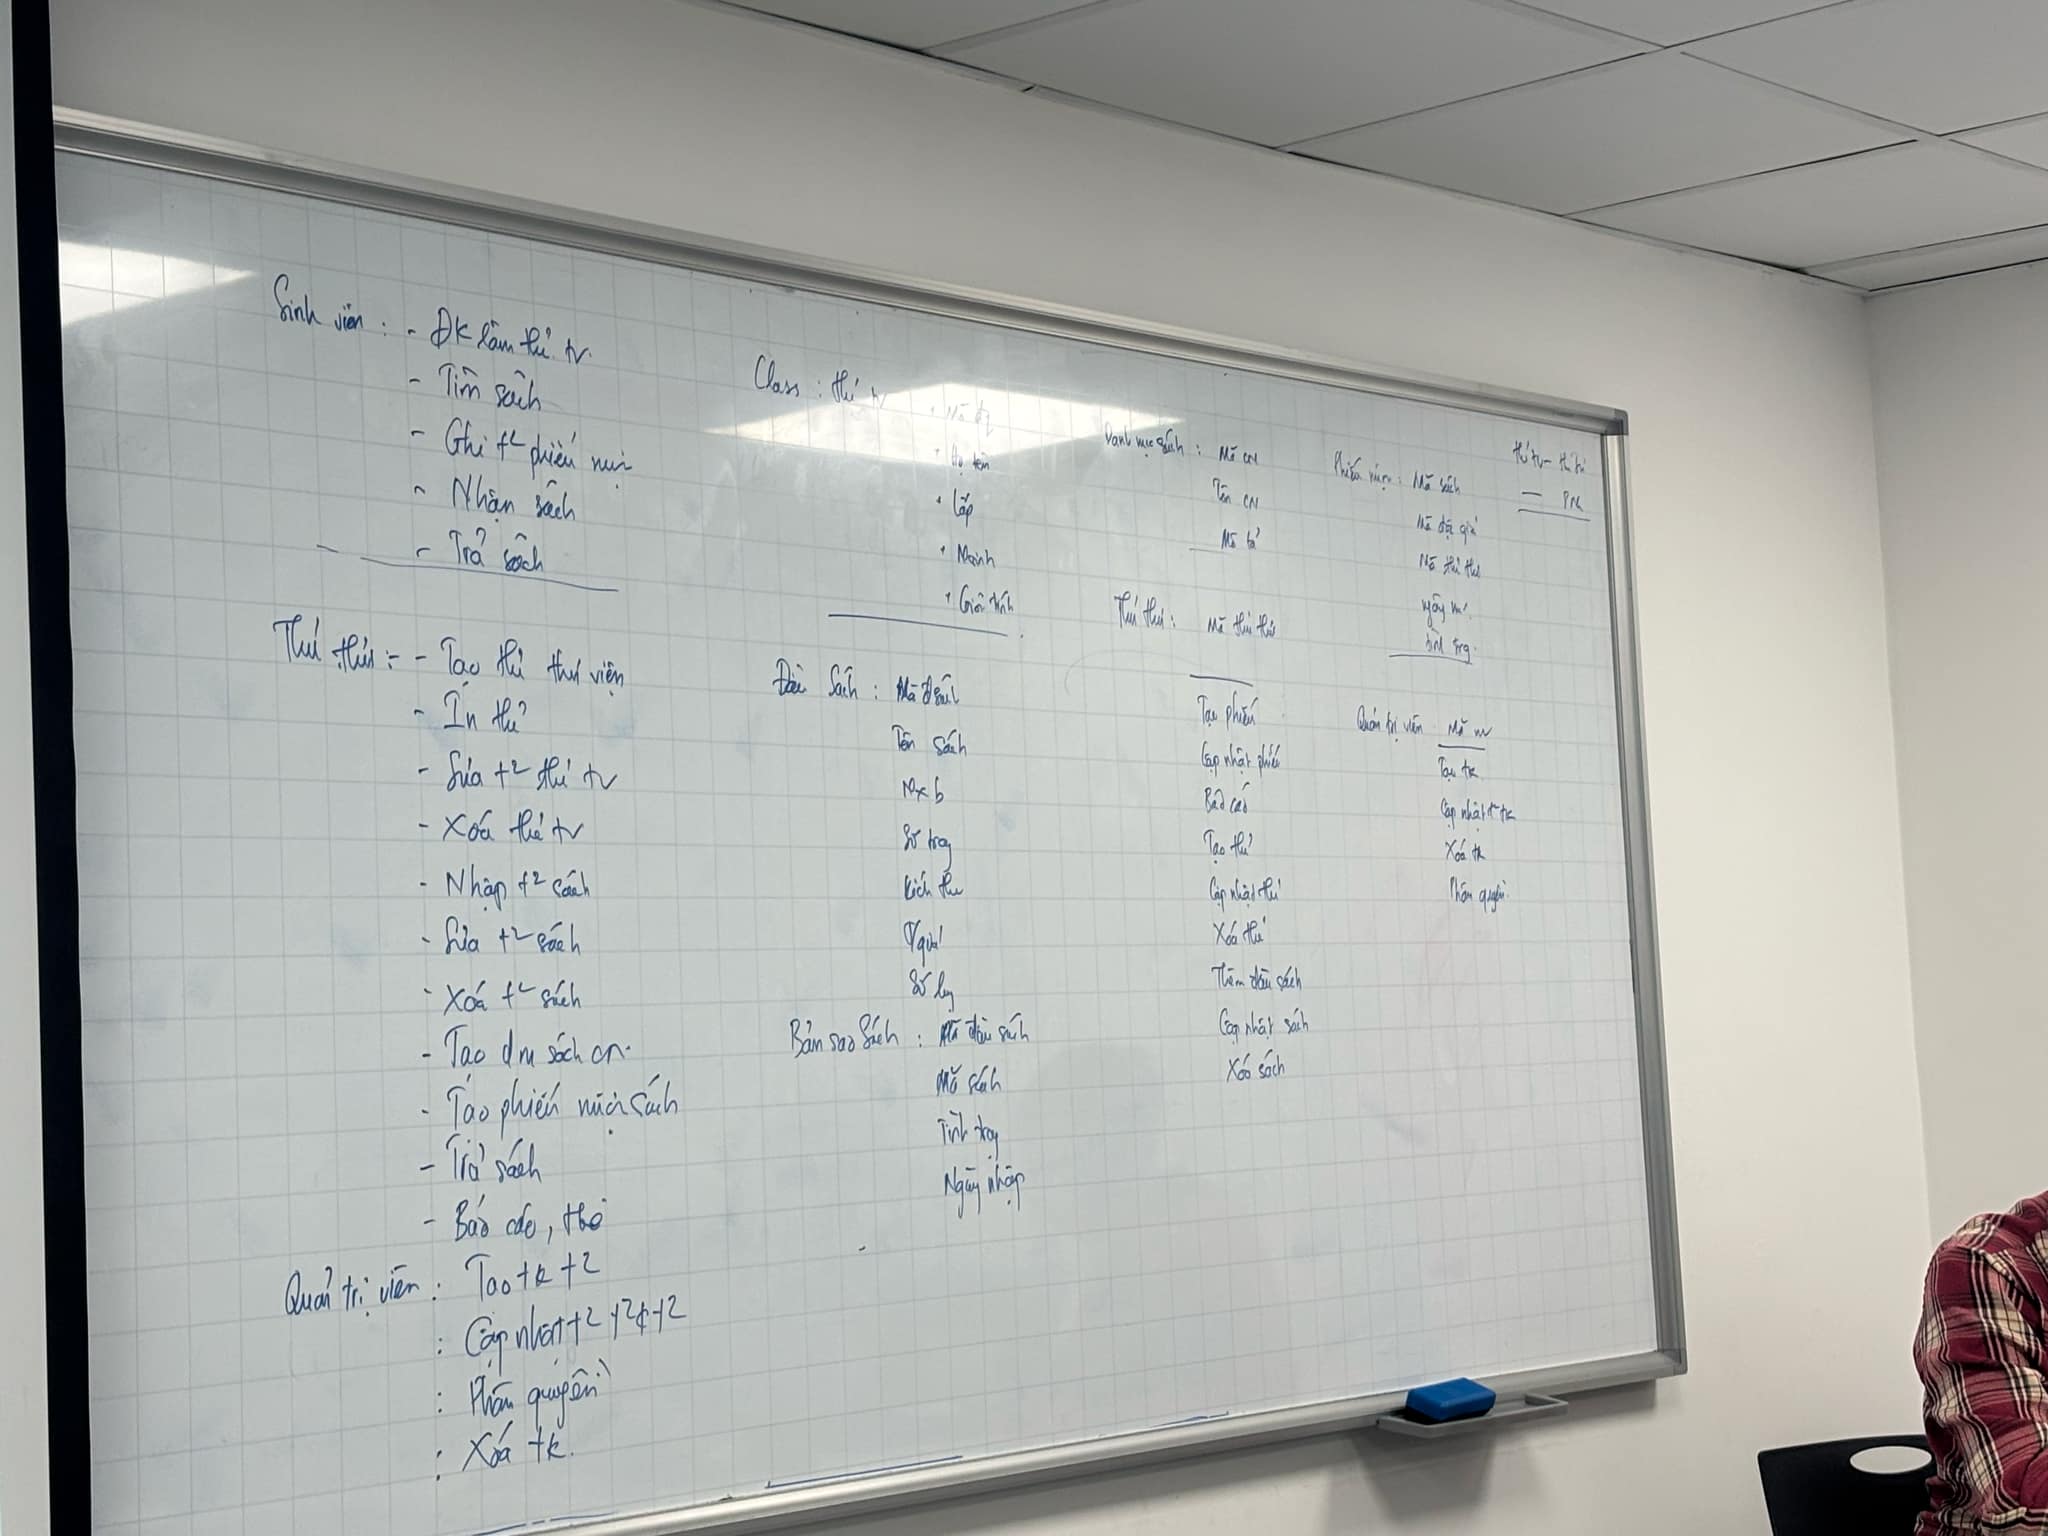 Sinh viên : - ĐK làm thẻ tv.
- Tìm sách
- Ghi t² phiếu mượn
- Nhận sách
- Trả sách
Thủ thư :- - Tạo thẻ thư viện
- In thẻ
- Sửa t² thẻ tv
- Xoá thẻ tv
- Nhập t² sách
- Sửa t² sách
- Xoá t² sách
- Tạo dm sách cn.
- Tạo phiếu mượn sách
- Trả sách
- Báo cáo,
Quản trị viên : Tạo tk t²
: Cập nhật t²
: Phân quyền
: Xoá tk.
Class : thẻ tv
• Mã đg
• Họ tên
• Lớp
• Ngành
• Giới tính
Đầu sách : Mã đsách
Tên sách
Nxb
Số trang
Kích thư
Số lg
Bản sao sách : Mã đầu sách
Mã sách
Tình trạng
Ngày nhập
Danh mục sách : Mã CN
Tên CN
Mô tả
Thủ thư : Mã thủ thư
Tạo phiếu
Cập nhật phiếu
Báo cáo
Tạo thẻ
Cập nhật thẻ
Xoá thẻ
Thêm đầu sách
Cập nhật sách
Xoá sách
Phiếu mượn : Mã sách
Mã độc giả
Mã thủ thư
ngày m
tình trạng.
Quản trị viên Mã
Tạo tk
Cập nhật tk
Xoá tk
Phân quyền.